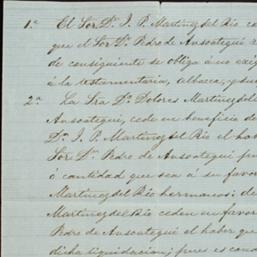 1.ª El Sor. Dn. J. P. Martinez del Rio
que el Sor. Dn. Pedro de Ansoategui
de consiguiente se obliga á no
á la testamentaria, albacea, y
2.ª La Sra. Dª. Dolores Martinez del
Ansoategui, cede en beneficio de
Dn. J. P. Martinez del Rio el
Sor. Dn. Pedro de Ansoategui
ó cantidad que sea á su favor
Martinez del Rio hermanos: de
Martinez del Rio ceden en favor
Pedro de Ansoategui el haber que
dicha liquidacion; pues es